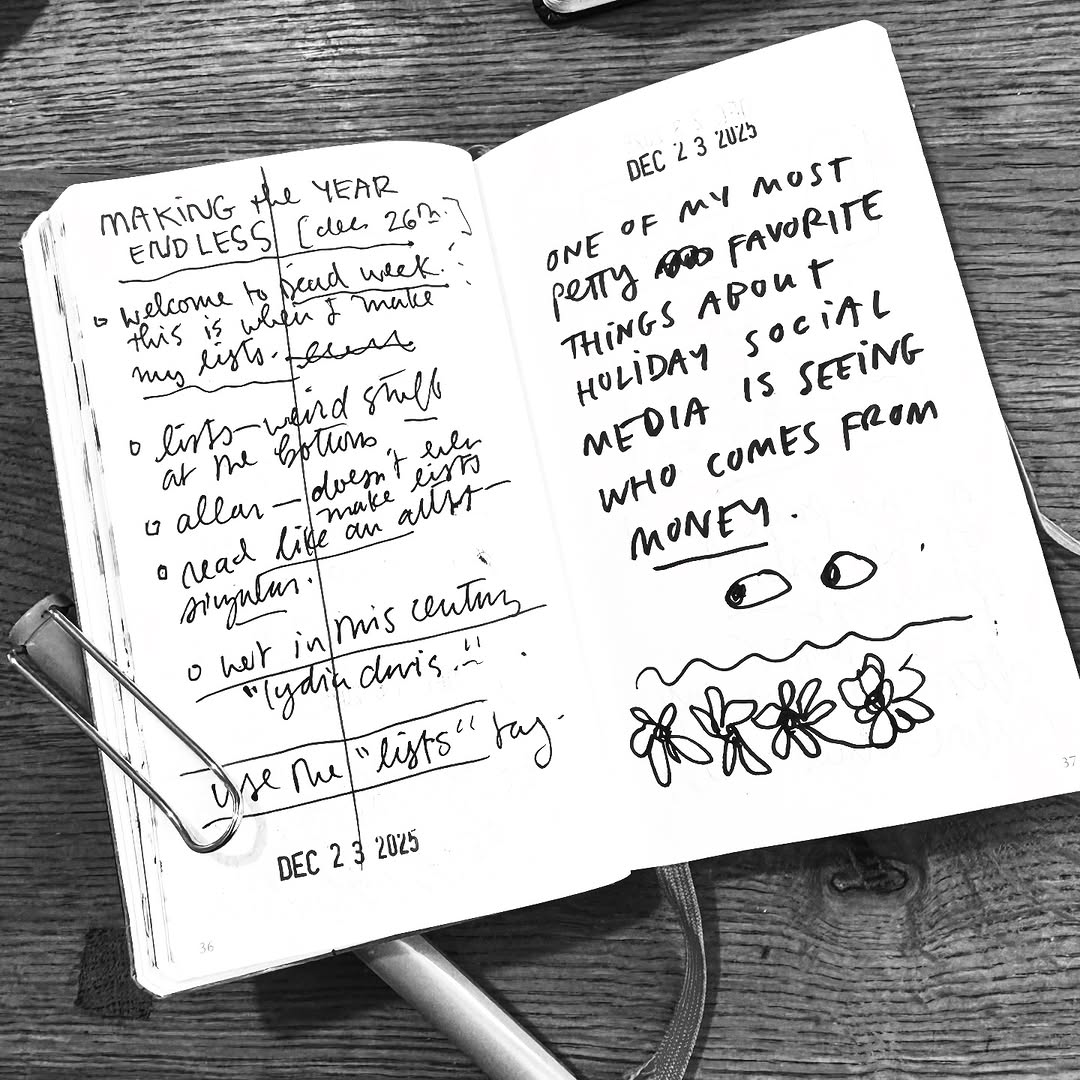 MAKING the YEAR
ENDLESS [dec 26th.]
welcome to dead week.
this is when I make
my lists.
lists—weird stuff
at the bottom
allan — doesn't even
make lists
read like an artist
singular.
not in this century
"lydia davis."
use the "lists" tag.
DEC 23 2025
36
DEC 23 2025
ONE OF MY MOST
PETTY FAVORITE
THINGS ABOUT
HOLIDAY SOCIAL
MEDIA IS SEEING
WHO COMES FROM
MONEY.
37